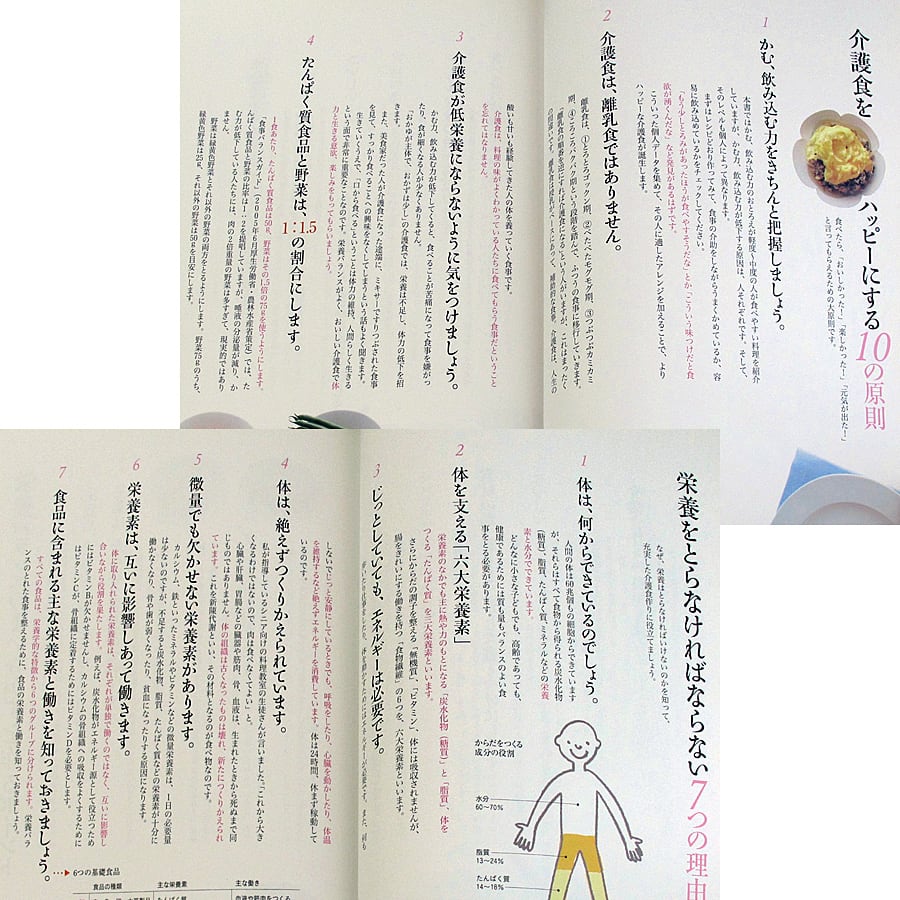 介護食をハッピーにする
10の原則
食べたら、「おいしかった!」「楽しかった!」「元気が出た!」
と言ってもらえるための大原則です。
1
かむ、飲み込む力をきちんと把握しましょう。
本書ではかむ、飲み込む力の低下が軽度〜中度の人が食べやすい料理を紹介
していますが、かむ力、飲み込む力が低下する原因は、人それぞれです。そして、
そのレベルも個人によって異なります。
まずはレシピどおり作ってみて、食事の介助をしながらうまくかめているか、容
易に飲み込めているかをチェックしてください。
「もう少しとろみがあったほうが食べやすそうだな」とか、「こういう味つけだと食
欲が湧くんだな」など発見があるはずです。
こういった個人データを集めて、その人に適したアレンジを加えることで、より
ハッピーな介護食が誕生します。
2
介護食は、離乳食ではありません。
離乳食は、①とろとろゴックン期、②べたべたモグモグ期、③つぶつぶカミカミ
期、④ころころパクパク期という段階を踏んで、ふつうの食事に移行していきます。
「離乳食の順番を逆に戻せば介護食になる」という人がいますが、これはまったく
酸いも甘いも経験してきた人の体を養っていく食事です。
介護食は、料理の味がよくわかっている人たちに食べてもらう食事だということ
を忘れてはなりません。
3
介護食が低栄養にならないように気をつけましょう。
かむ力、飲み込む力が低下してくると、食べることが苦痛になって食事を嫌がっ
たり、食が細くなる人が少なくありません。
「おかゆが主体で、おかずは少し」の介護食では、栄養は不足し、体力の低下を招
きます。
また、美食家だった人が介護食になった途端に、ミキサーですりつぶされた食事
を見て、すっかり食べることへの興味をなくしてしまうという話もよく聞きます。
生きていくうえで、「口から食べる」ということは体力の維持、人間らしく生きる
という面で非常に重要なことなのです。栄養バランスがよく、おいしい介護食で体
力と生きる意欲、楽しみをもってもらいましょう。
4
たんぱく質食品と野菜は、1:1.5の割合にします。
1食あたり、たんぱく質食品は50g、野菜はその1.5倍の75gを使うようにします。
「食事バランスガイド」(2005年6月厚生労働省・農林水産省策定)では、た
んぱく質食品と野菜の比率は1:2を提唱していますが、唾液の分泌量が減り、か
む力が低下している人たちには、肉の2倍重量の野菜は多すぎて、現実的ではあり
ません。
野菜は緑黄色野菜とそれ以外の野菜の両方をとるようにします。野菜75gのうち、
緑黄色野菜は25g、それ以外の野菜は50gを目安にします。
栄養をとらなければならない7つの理由
なぜ、栄養はとらなければいけないのかを知って、
充実した介護食作りに役立てましょう。
1
体は、何からできているのでしょう。
人間の体は60兆個もの細胞からできています
が、それらはすべて食物から得られる炭水化物
(糖質)、脂質、たんぱく質、ミネラルなどの栄養
素と水分でできています。
どんなに小さな子どもでも、高齢であっても、
健康であるためには質も量もバランスのよい食
事をとる必要があります。
からだをつくる
成分の役割
水分
60〜70%
脂質
13〜24%
たんぱく質
14〜18%
2
体を支える「六大栄養素」
栄養素のなかでも主に熱や力のもとになる「炭水化物(糖質)」と「脂質」、体を
つくる「たんぱく質」を三大栄養素といいます。
さらにからだの調子を整える「無機質」、「ビタミン」、体には吸収されませんが、
腸をきれいにする働きを持つ「食物繊維」の6つを、六大栄養素といいます。
3
じっとしていても、エネルギーは必要です。
しないでじっと安静にしているときでも、呼吸をしたり、心臓を動かしたり、体温
を維持するなど絶えずエネルギーを消費しています。体は24時間、休まず稼動して
いるのです。
4
体は、絶えずつくりかえられています。
私が指導しているシニア向けの料理教室の生徒さんが言いました。「これから大き
くなるわけではないので、肉は食べなくてよい」と。
心臓や肝臓、胃腸などの臓器や筋肉、骨、血液は、生まれたときから死ぬまで同
じものではありません。体の組織は古くなったものは壊れ、新たにつくりかえられ
ています。これを新陳代謝といい、その材料となるのが食べ物なのです。
5
微量でも欠かせない栄養素があります。
カルシウム、鉄といったミネラルやビタミンなどの微量栄養素は、1日の必要量
は少ないのですが、不足すると炭水化物、脂質、たんぱく質などの栄養素が十分に
働かなくなり、骨や歯が弱くなったり、貧血になったりする原因になります。
6
栄養素は、互いに影響しあって働きます。
体に取り入れられた栄養素は、それぞれが単独で働くのではなく、互いに影響し
合いながら役割を果たします。例えば、炭水化物がエネルギー源として役立つため
にはビタミンBが欠かせませんし、カルシウムの骨組織への吸収をよくするために
はビタミンC が、骨組織に定着するためにはビタミンDを必要とします。
7
食品に含まれる主な栄養素と働きを知っておきましょう。
すべての食品は、栄養学的な特徴から6つのグループに分けられます。栄養バラ
ンスのとれた食事を整えるために、食品の栄養素と働きを知っておきましょう。
6つの基礎食品
食品の種類 主な栄養素 主な働き
たんぱく質 血液や筋肉をつくる